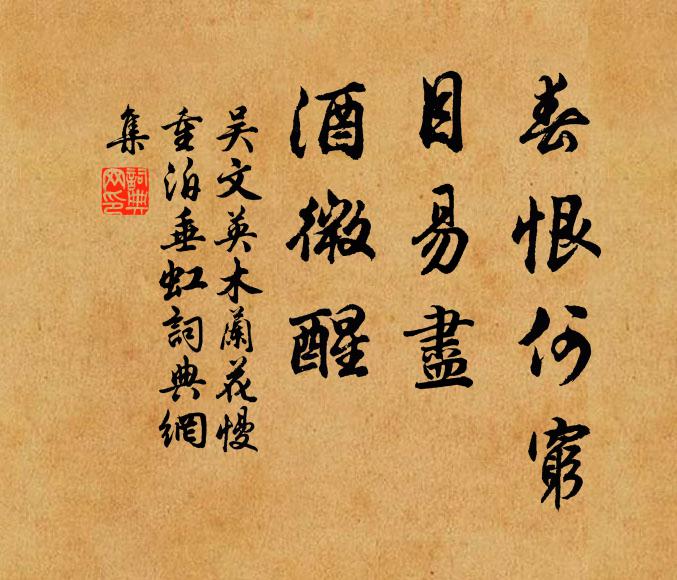 春恨何窮
目易盡
酒微醒
吳文英木蘭花慢
重泊垂虹詞典網
集
詞典
网印